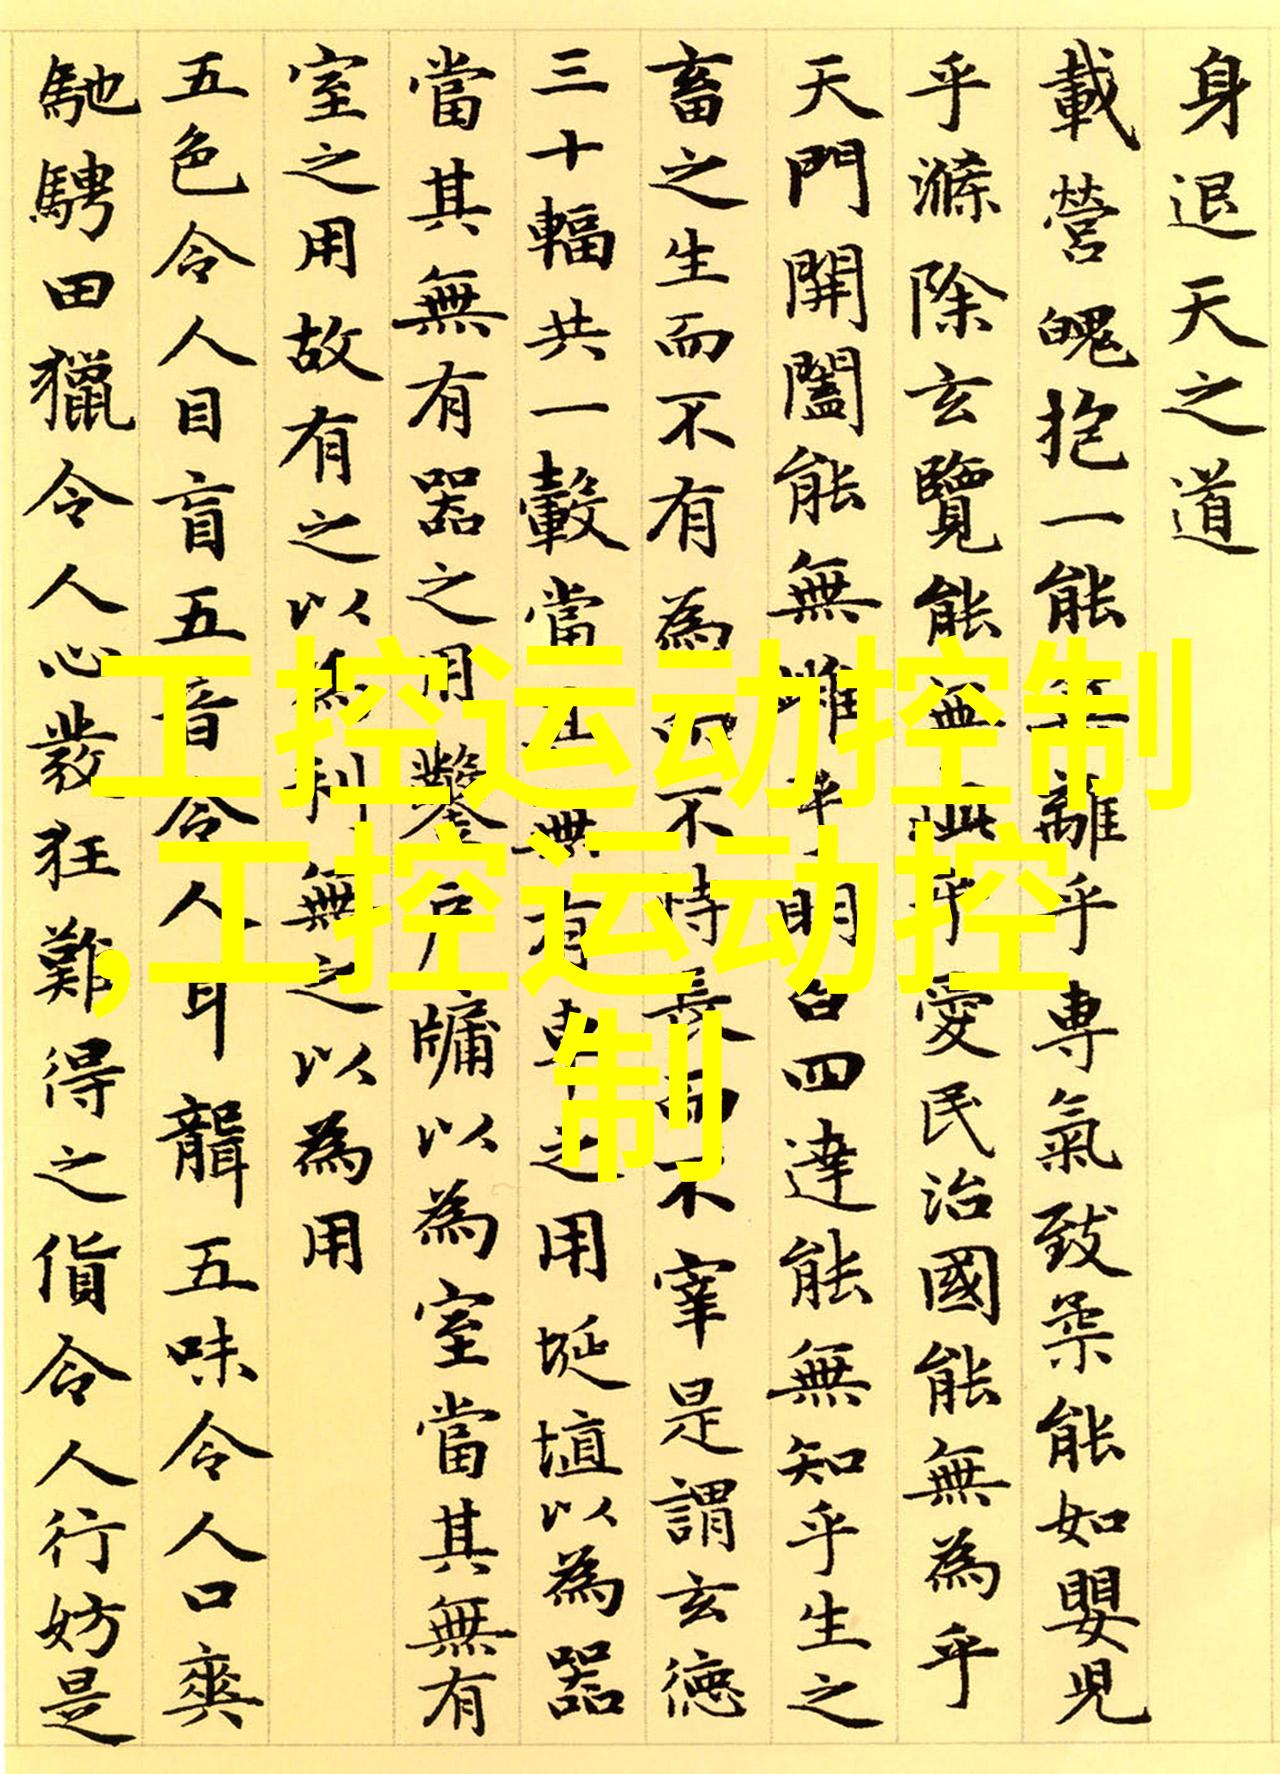 身退天之道
載營魄抱一能無離乎專氣致柔能如嬰児
乎滌除玄覽能無疵乎愛民治國能無為乎
天門開闔能無雌乎明白四達能無知乎生之
畜之生而不有為而不恃長而不宰是謂玄德
三十輻共一轂當其無有車之用埏埴以為器
當其無有器之用鑿戶牖以為室當其無有
室之用故有之以為利無之以為用
五色令人目盲五音令人耳聾五味令人口爽
馳騁田獵令人心發狂難得之貨令人行妨是
工控运动控制
,工控运动控
制